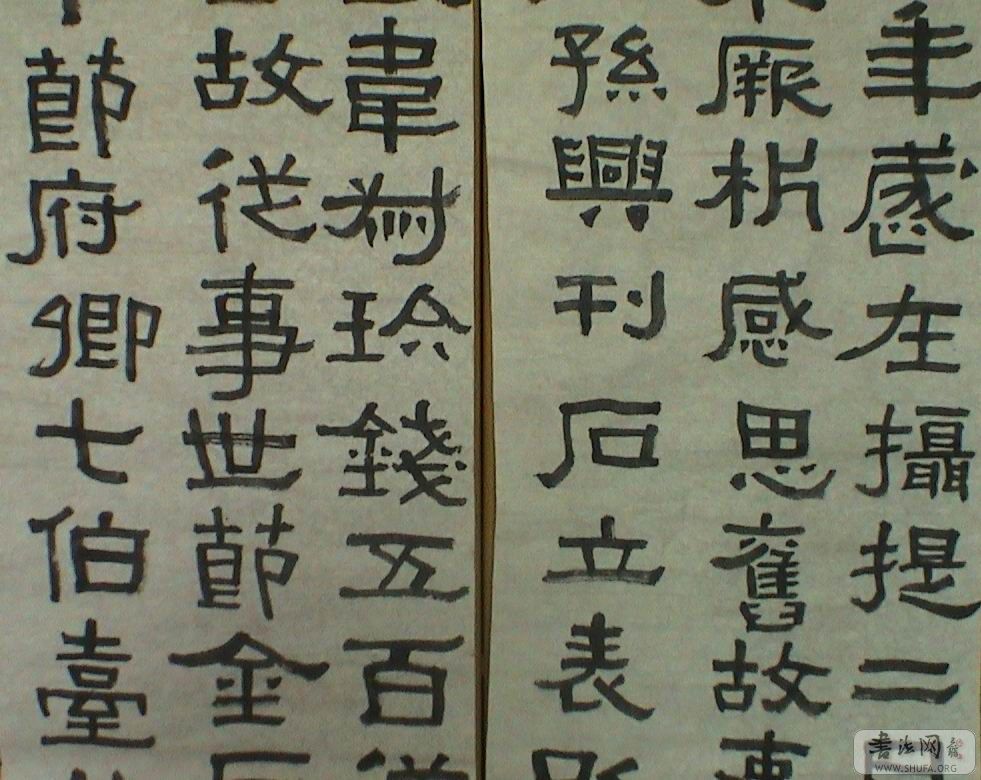 年歲在攝提二
厥析感思舊故吏
孫興刊石立表
韋叔珍錢五百從
故從事世節金
節府卿七伯臺
書法网
WWW.SHUFA.ORG